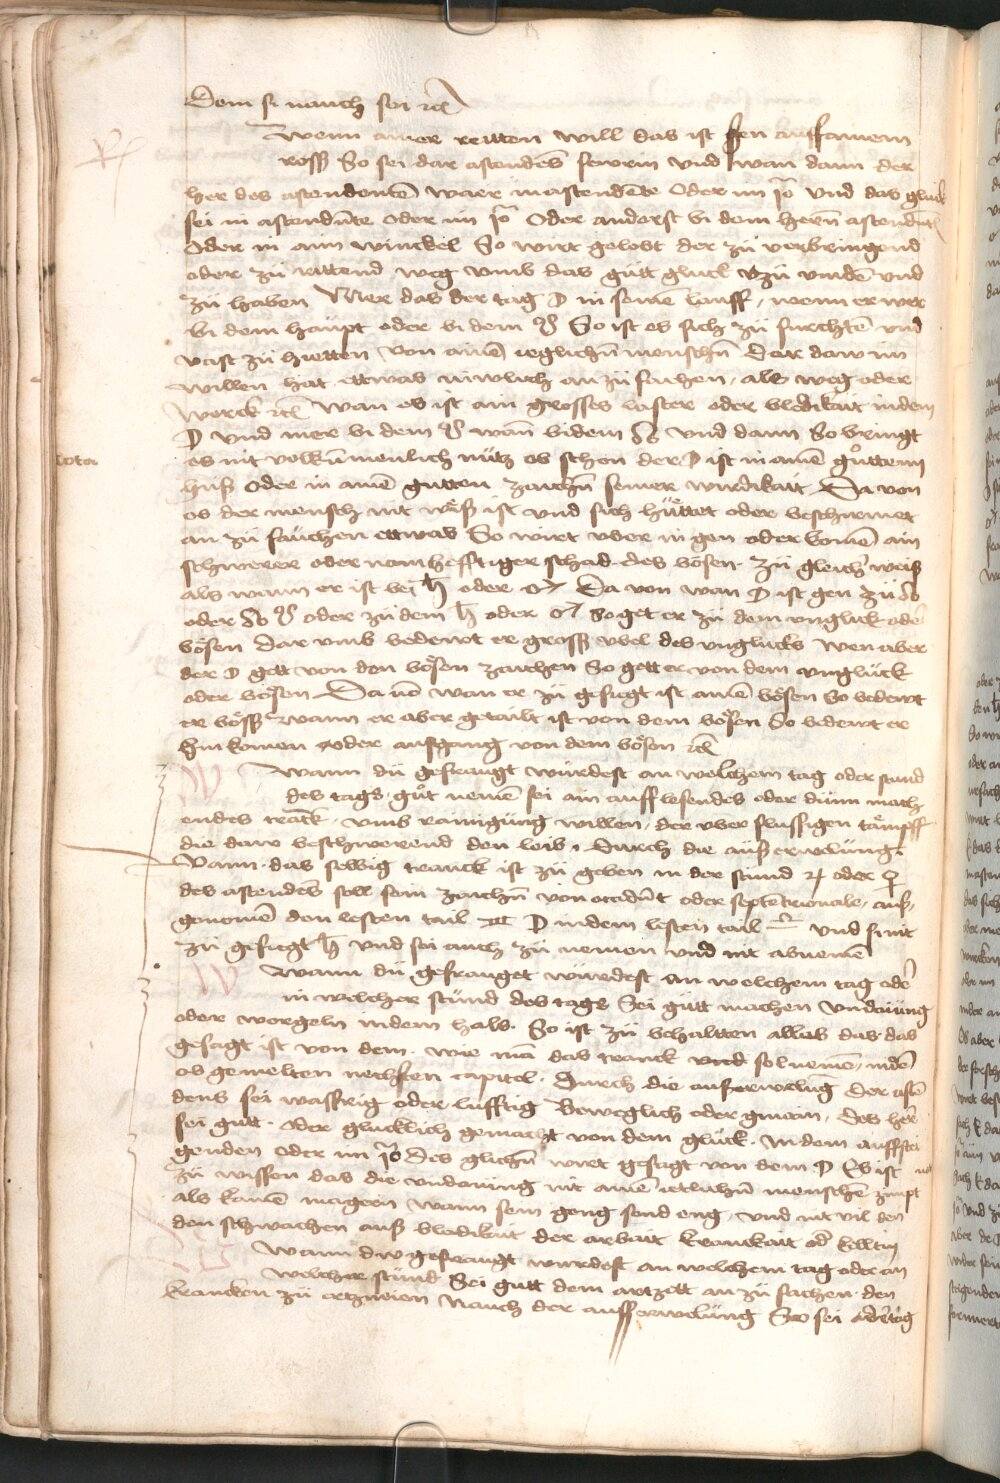 Dem si nauch sei etc
Wenn ainer reitten will das ist sen auff ainem
ross So sei der astendens fewrin vnd wan dann der
her des astendenten wăer in astendente Oder im io vnd das gluck
sei in astendente oder im io Oder anderst bi dem herñ astendent
Oder in aim winckel So wirt gelobt der zu verbringend
oder zu rittend weg vmb das gutt gluck zu vinden vnd
zu haben Mer das der tag ☽ in seine lauff, wenn er wer
bi dem haupt oder bi dem ☋ So ist es sich zu furchten vnd
vast zu hietten von ainē ieglichen menschen Der daw im
willen hat ettwas niwlich an zu fachen, als weg oder
worck etc Wan es ist ain grosses laster oder blodikait indem
☽ vnd mer bi dem ☋ wann bi dem ☊ vnd dann So bringt
es nit volkumenlich nutz ob schon der ☽ ist in ainē guttenn
huß Oder in ainē gutten zaichen seiner wirdikait Da von
ob der mensch nit wăß ist vnd sich huttet oder beschirmet
an zu fauchen ettwas So wirt vber in gen oder komē ain
schwerer oder namhefftiger schad des bosen. Zu gleicher weiß
als wann er ist bei ♄ oder ♂ Da von wan ☽ ist gen zu ☊
oder ☊ ☋ oder zu dem ♄ oder ♂ So get er zu dem vngluck oder
bősen Dar vmb bedewt er gross vbel des vnglucks Wen aber
der ☽ gett von den bősen zaichen So gett er von dem vngluck
oder bősen Da uō wan er zu gefiegt ist ainē bősen So bedewt
er bőss Wann er aber getailt ist von dem bősen So bedewt er
hin komen oder aufgang von dem bősen etc
Wann du gefraugt wurdest an welchem tag oder stund
des tags gut nemē sei ain aufflesendes oder dinn mach
endes tranck vmb rainigung willen der vber flussigen tămpff
die daw beschwerend den leib, Durch die auß erwelung.
Wann das selbig tranck ist zu geben in der stund ♃ oder ♀
des astendens soll sein zaichen von occident oder septētrionale, auß,
genomē den lesten tail ♏ ☽ in dem lesten tail ♎ vnd si nit
zu gefiegt ♄ vnd sei auch zu nemen vnd nit abnemē
Wann du gefrauget wurdest an welchem tag oder
in welcher stund des tags Sei gutt machen vndaiung
oder worgeln indem hals. So ist zu behaltten alles das das
gesagt ist von dem. wie mā das tranck sol nemē, in dē
ob gemelten nechsten capitel. Durch die außerwelung der astē
dens sei wassrig oder lufftig Beweglich oder gmain, des herr
sei gutt. oder glucklich gemacht von dem gluck. In dem auffstei
genden oder im io des glichen wirt gesagt von dem ☽ Es ist not
zu wissen das die vndaiung nit ainē ietlichen menschē zimpt
als kainē magern wann sein geng send eng, vnd nit vil den
den schwachen auß blodikait der arbait kranckait od kelltin
Wann du gefraugt wurdest an welchem tag oder an
welcher stund Sei gutt dem artzett an zu fachen den
krancken zu ertzneien Nauch der außerwelung So sei
Nota